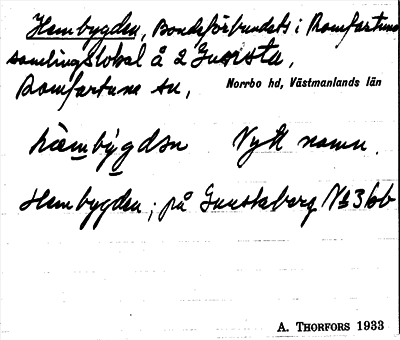 Hembygden, Bondeförbundets i Romfartuna
samlingslokal å 2 Gussta,
Romfartuna sn, Norrbo hd, Västmanlands län
hæmbýgdən Nytt namn.
Hembygden; på Gunskberg N 3 bb
A. THORFORS 1933